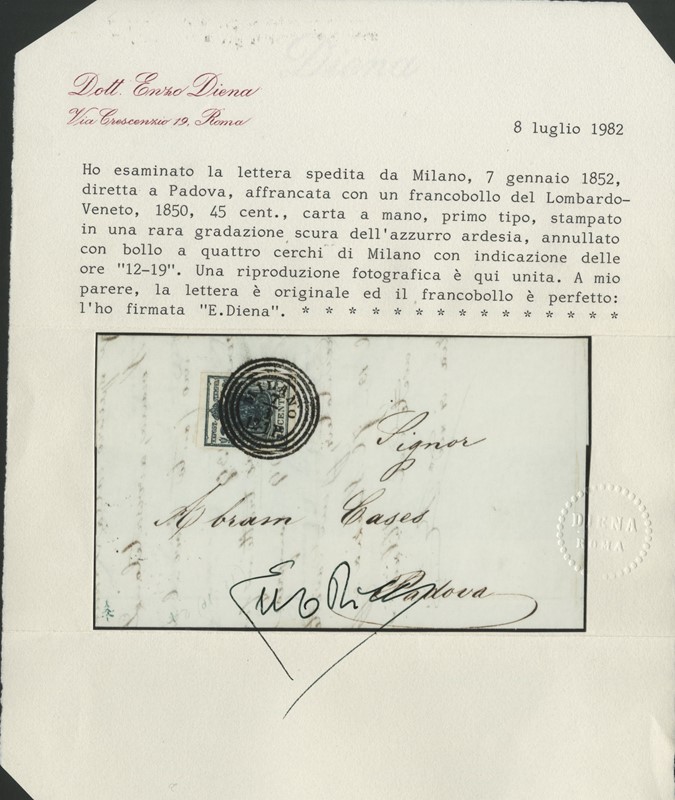 Dott. Enzo Diena
Via Crescenzio 19, Roma
8 luglio 1982
Ho esaminato la lettera spedita da Milano, 7 gennaio 1852,
diretta a Padova, affrancata con un francobollo del Lombardo-
Veneto, 1850, 45 cent., carta a mano, primo tipo, stampato
in una rara gradazione scura dell'azzurro ardesia, annullato
con bollo a quattro cerchi di Milano con indicazione delle
ore "12-19". Una riproduzione fotografica è qui unita. A mio
parere, la lettera è originale ed il francobollo è perfetto:
l'ho firmata "E.Diena". * * * * * * * * * * * * * * *
MILANO
CENT
Signor
Abram Cases
DIENA
ROMA
Padova